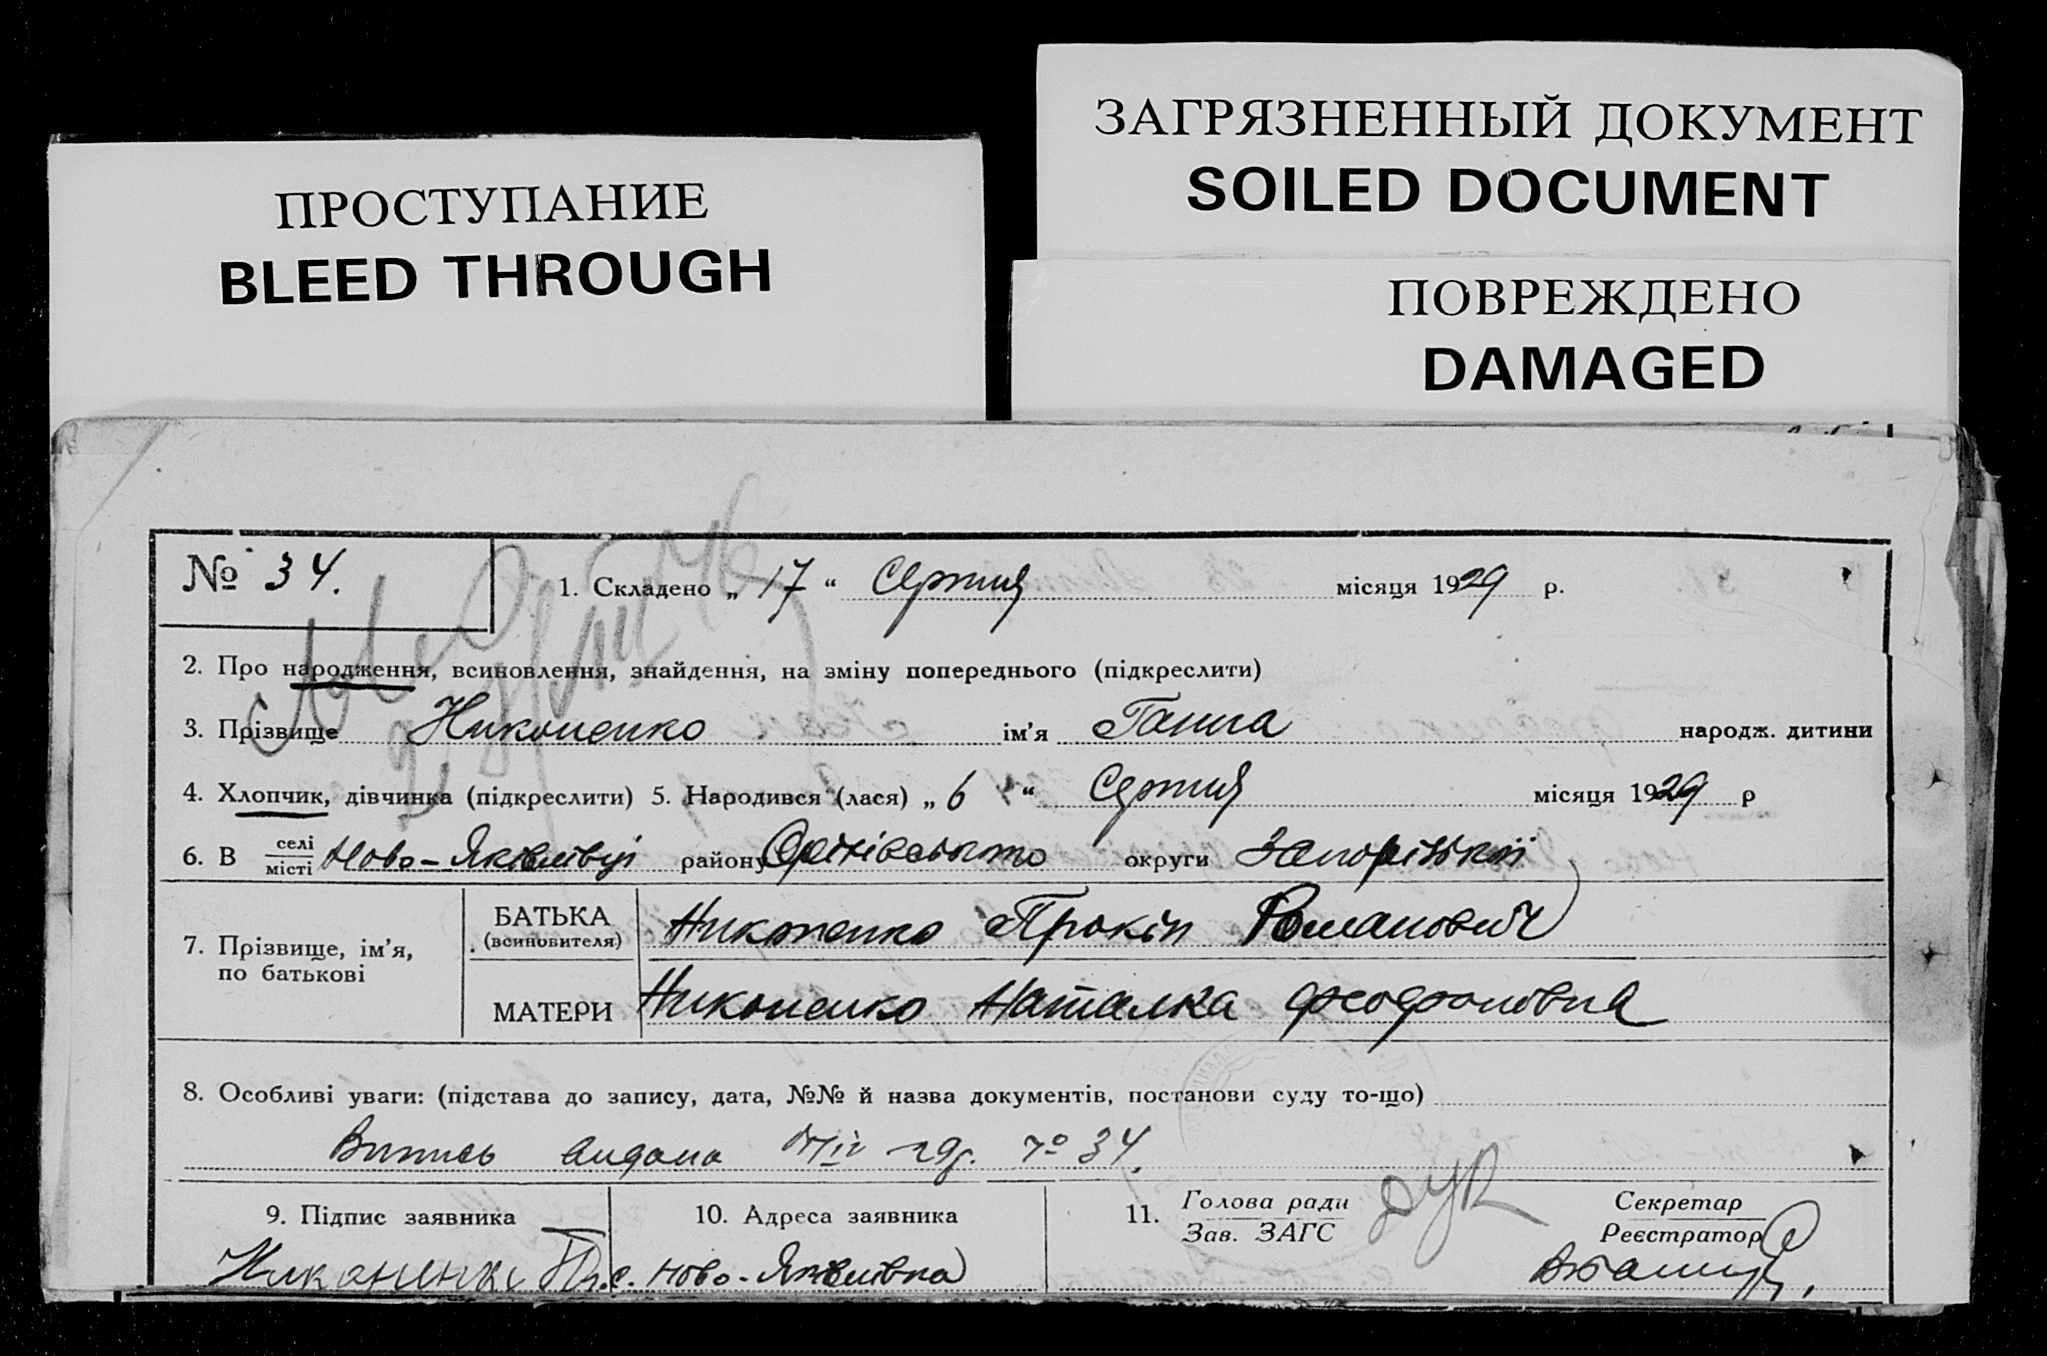 ПРОСТУПАНИЕ
BLEED THROUGH
ЗАГРЯЗНЕННЫЙ ДОКУМЕНТ
SOILED DOCUMENT
ПОВРЕЖДЕНО
DAMAGED
№ 34.
1. Складено „ 17 “ Серпня місяця 1929 р.
2. Про народження, всиновлення, знайдення, на зміну попереднього (підкреслити)
3. Прізвище Никоненко ім’я Ганна народж. дитини
4. Хлопчик, дівчинка (підкреслити) 5. Народився (лася) „ 6 “ Серпня місяця 1929 р
6. В селі місті Ново-Яківлівці району Оріхівського округи Запорізької
7. Прізвище, ім’я, по батькові
БАТЬКА (всиновителя) Никоненко Прокіп Романович
МАТЕРИ Никоненко Наталка
8. Особливі уваги: (підстава до запису, дата, №№ й назва документів, постанови суду то-що)
Випись видана 29р. № 34.
9. Підпис заявника
Никоненко
10. Адреса заявника
с. Ново-Яковлівка
11. Голова ради
Зав. ЗАГС
Секретар
Реєстратор